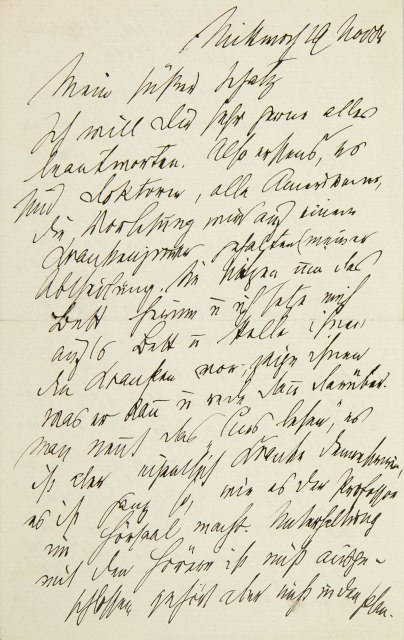 Mittwoch 19 Novbr
Mein süßer Schatz
Ich will dir sehr gerne alles
beantworten. Also erstens, es
sind Doktoren, alle Amerikaner,
die Vorlesung wird auf einem
Krankenzimmer gehalten (meiner
Abtheilung. Sie sitzen um das
Bett herum u ich setze mich
aufs Bett u stelle ihnen
den Kranken vor, zeige ihnen
was er kann u rede dann darüber.
man nennt das „Curs lesen", es
ist aber eigentlich Kranke demonstriren,
es ist ganz so, wie es der Professor
im Hörsaal macht. Unterhaltung
mit den Hörern ist nicht ausge-
schlossen, gehört aber nicht in den Plan.